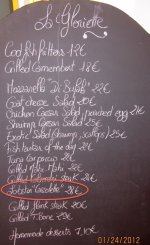 La Gloriette
Cod fish fritters 12€
Grilled Camembert 18€
Mozzarella "Di Bufala" 22€
Goat cheese Salad 20€
Chicken Caesar Salad, poached egg 21€
Shrimp Caesar Salad 25€
Salad (shrimp, scallops) 25€
Fish tartar of the day 22€
Tuna Carpaccio 22€
Grilled Mahi Mahi 22€
Grilled steak 28€
Lobster "Cassolette" 28€
Grilled steak 20€
Grilled T.bone 25€
Homemade desserts 7,10€
01/24/2012